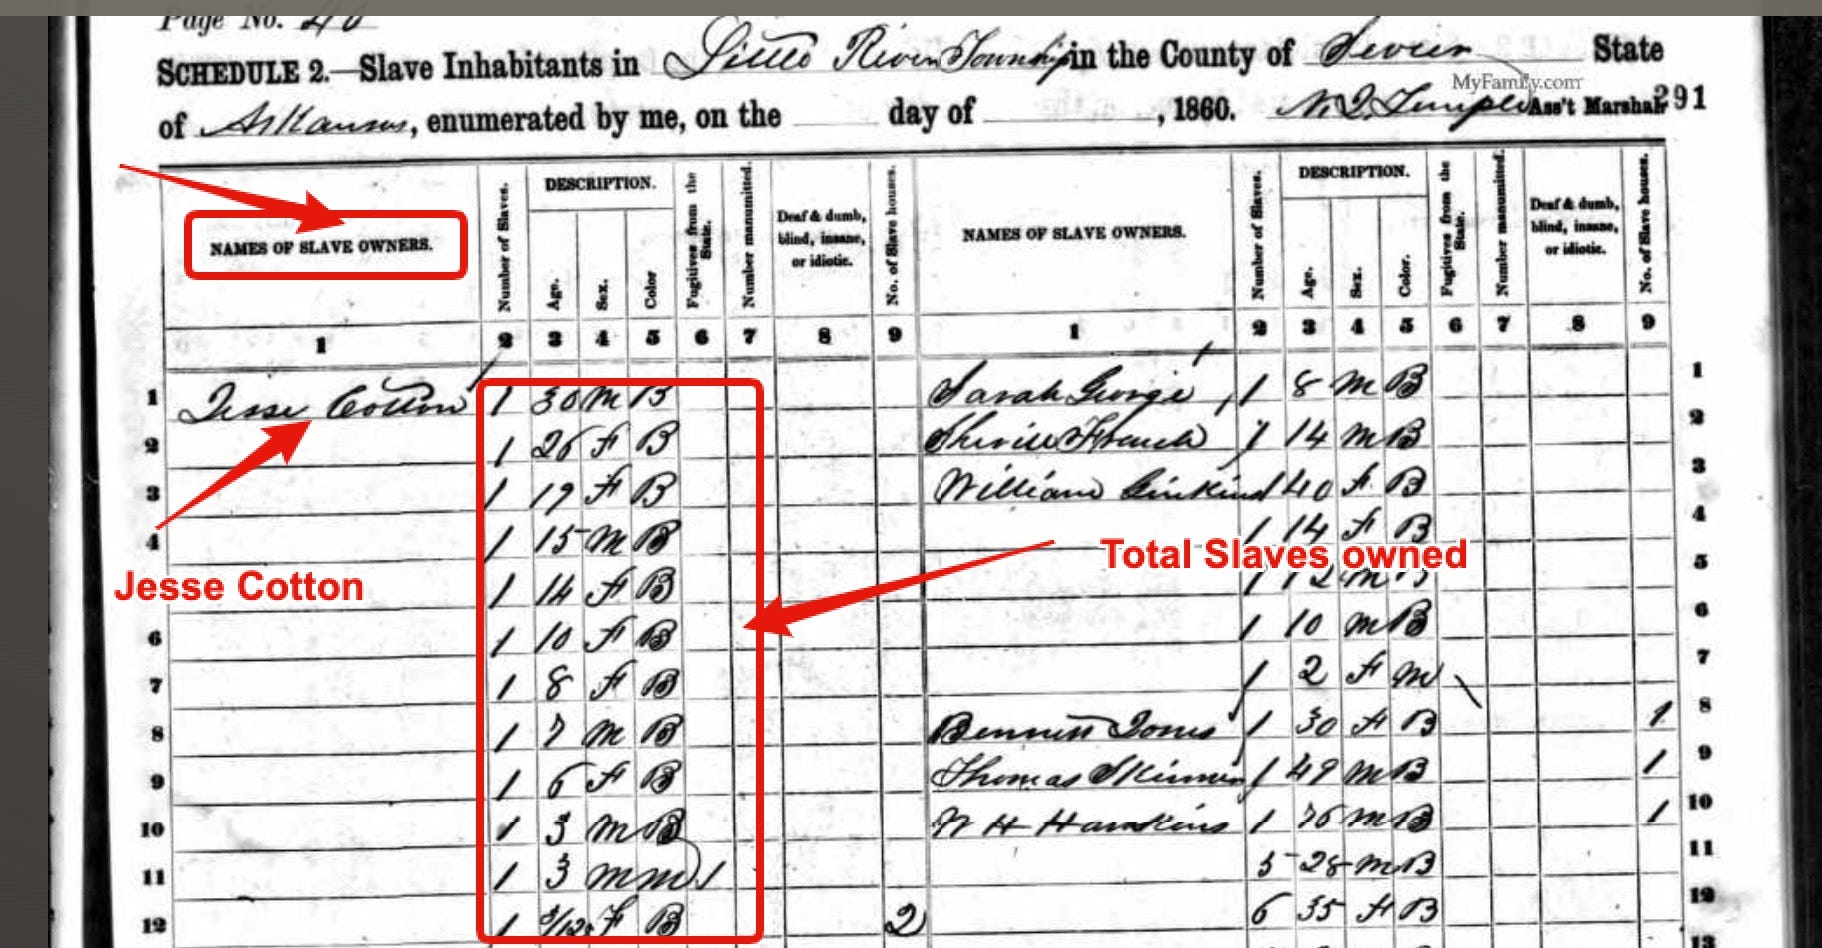 Page No. 40
SCHEDULE 2.—Slave Inhabitants in Little River Township in the County of Sevier State
MyFamily.com
of Arkansas, enumerated by me, on the day of , 1860. Ass't Marshal. 291
NAMES OF SLAVE OWNERS. Number of Slaves. DESCRIPTION. Age. Sex. Color Fugitives from the State. Number manumitted. Deaf & dumb, blind, insane, or idiotic. No. of Slave houses. NAMES OF SLAVE OWNERS. Number of Slaves. DESCRIPTION. Age. Sex. Color. Fugitives from the State. Number manumitted. Deaf & dumb, blind, insane, or idiotic. No. of Slave houses.
1 2 3 4 5 6 7 8 9 1 2 3 4 5 6 7 8 9
1 Jesse Cotton 1 30 M B Sarah George 1 8 M B 1
2 1 26 F B French 1 14 M B 2
3 1 19 F B William 1 40 F B 3
4 1 15 M B 1 14 F B 4
Jesse Cotton
Total Slaves owned
1 14 F B 1 12 M B 5
6 1 10 F B 1 10 M B 6
7 1 8 F B 1 2 F M 7
8 1 7 M B Bennett Jones 1 30 F B 1 8
9 1 6 F B Thomas 1 49 M B 1 9
10 1 3 M B W H Hawkins 1 M B 1 10
11 1 3 M M 1 28 M B 11
12 1 F B 2 6 35 F B 12
13